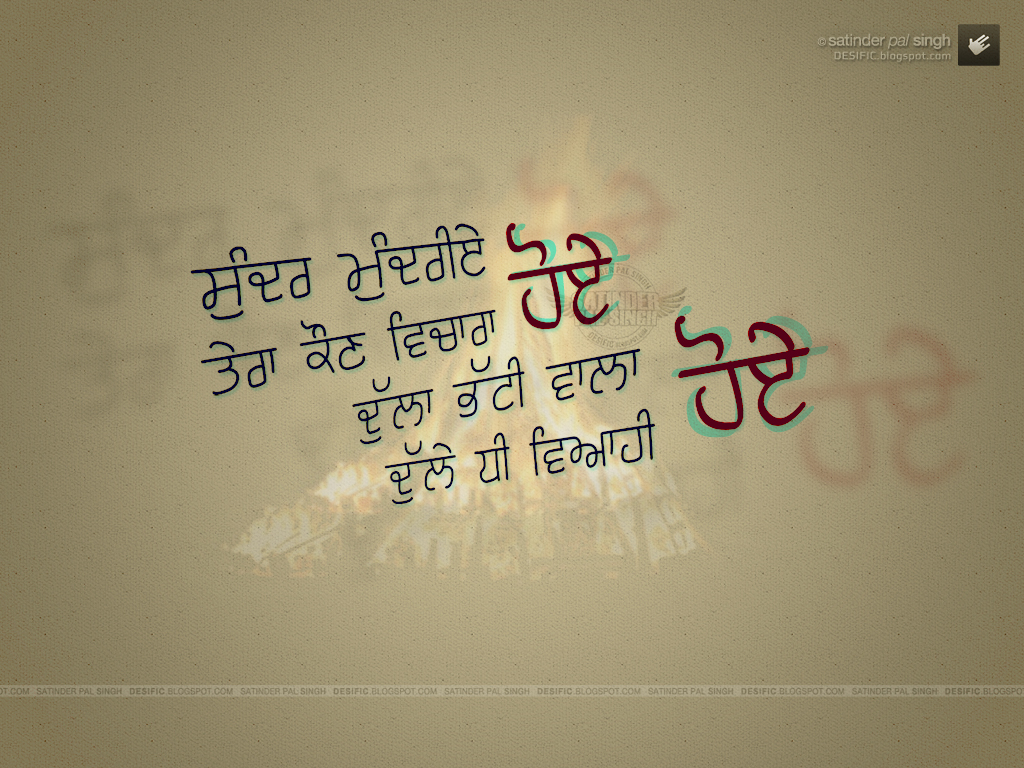 ©satinder pal singh
DESIFIC.blogspot.com
ਸੁੰਦਰ ਮੁੰਦਰੀਏ ਹੋਏ
ਤੇਰਾ ਕੌਣ ਵਿਚਾਰਾ
ਦੁੱਲਾ ਭੱਟੀ ਵਾਲਾ ਹੋਏ
ਦੁੱਲੇ ਧੀ ਵਿਆਹੀ
SATINDER PAL SINGH
DESIFIC
OT.COM SATINDER PAL SINGH DESIFIC.BLOGSPOT.COM SATINDER PAL SINGH DESIFIC.BLOGSPOT.COM SATINDER PAL SINGH DESIFIC.BLOGSPOT.COM SATINDER PAL SINGH DESIFIC.BLOGSPOT.COM SATINDER PAL SINGH DESIFIC.BLOGSPOT